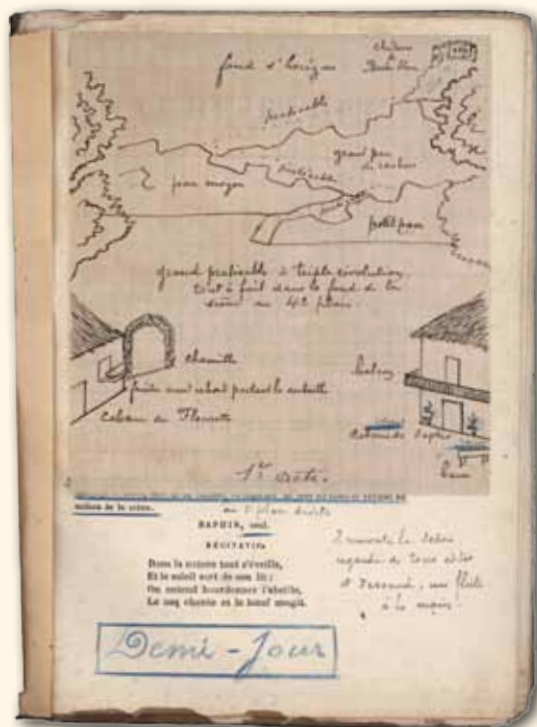 fond d'horizon
château
de
Barbe Bleue
praticable
grand pan
de rocher
praticable
pan moyen
petit pan
grand praticable à triple révolution.
tout à fait dans le fond de la
scène au 4e plan.
Charmille
balcon
Cabane de Fleurette
Cabane de Saphir
banc
1er acte.
milieu de la scène.
au 1er plan droite
SAPHIR, seul.
RÉCITATIF.
Dans la nature tout s'éveille,
Et le soleil sort de son lit :
On entend bourdonner l'abeille,
Le coq chante et le bœuf mugit.
Il remonte la scène
regarde de tous côtés
et descend, sa flûte
à la main.
Demi-Jour